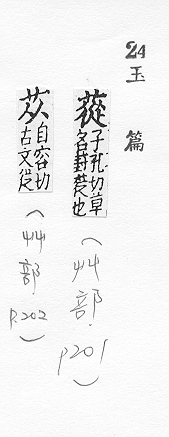 24 玉篇
蓯 子孔切草
名封蓯也
(艸部. p201)
苁 自容切
古文從
(艸部. P.202)